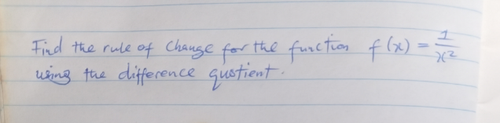 Find the rule of change for the function f(x) = 1/x²
using the difference quotient.